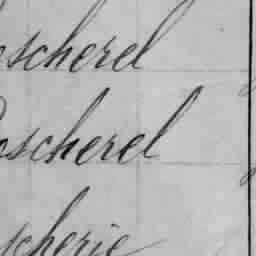 oscherel
oscherel
scherie